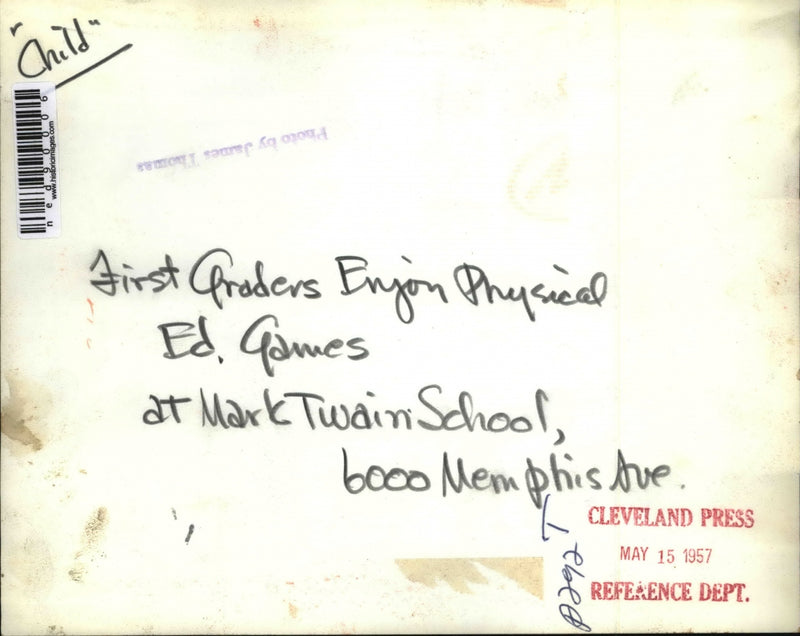 "Child"
ned90006
www.historicimages.com
Photo by James Thomas
First Graders Enjoy Physical
Ed. Games
at Mark Twain School,
6000 Memphis Ave.
CLEVELAND PRESS
MAY 15 1957
REFERENCE DEPT.